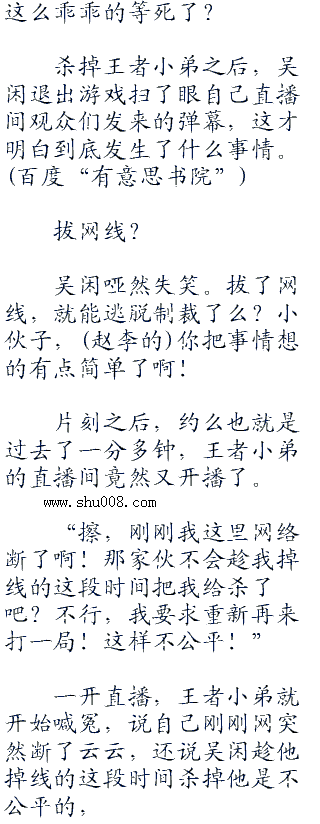 这么乖乖的等死了?
杀掉王者小弟之后，吴
闲退出游戏扫了眼自己直播
间观众们发来的弹幕，这才
明白到底发生了什么事情。
(百度“有意思书院”)
拔网线?
吴闲哑然失笑。拔了网
线，就能逃脱制裁了么? 小
伙子，(赵李的)你把事情想
的有点简单了啊!
片刻之后，约么也就是
过去了一分多钟，王者小弟
的直播间竟然又开播了。
www.shu008.com
“擦，刚刚我这里网络
断了啊! 那家伙不会趁我掉
线的这段时间把我给杀了
吧? 不行，我要求重新再来
打一局! 这样不公平!”
一开直播，王者小弟就
开始喊冤，说自己刚刚网突
然断了云云，还说吴闲趁他
掉线的这段时间杀掉他是不
公平的，